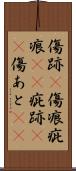 傷跡傷痕疵
痕疵跡
傷あと